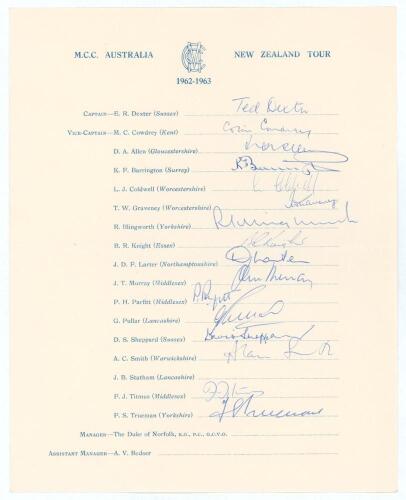 M.C.C. AUSTRALIA NEW ZEALAND TOUR
1962-1963
CAPTAIN—E. R. Dexter (Sussex) Ted Dexter
VICE-CAPTAIN—M. C. Cowdrey (Kent) Colin Cowdrey
D. A. Allen (Gloucestershire)
K. F. Barrington (Surrey) K Barrington
L. J. Coldwell (Worcestershire)
T. W. Graveney (Worcestershire)
R. Illingworth (Yorkshire) R Illingworth
B. R. Knight (Essex) B R Knight
J. D. F. Larter (Northamptonshire) D Larter
J. T. Murray (Middlesex) John Murray
P. H. Parfitt (Middlesex) P. Parfitt
G. Pullar (Lancashire)
D. S. Sheppard (Sussex) David Sheppard
A. C. Smith (Warwickshire) Alan Smith
J. B. Statham (Lancashire)
F. J. Titmus (Middlesex) F J Titmus
F. S. Trueman (Yorkshire) F S Trueman
MANAGER—The Duke of Norfolk, K.G., P.C., G.C.V.O.
ASSISTANT MANAGER—A. V. Bedser